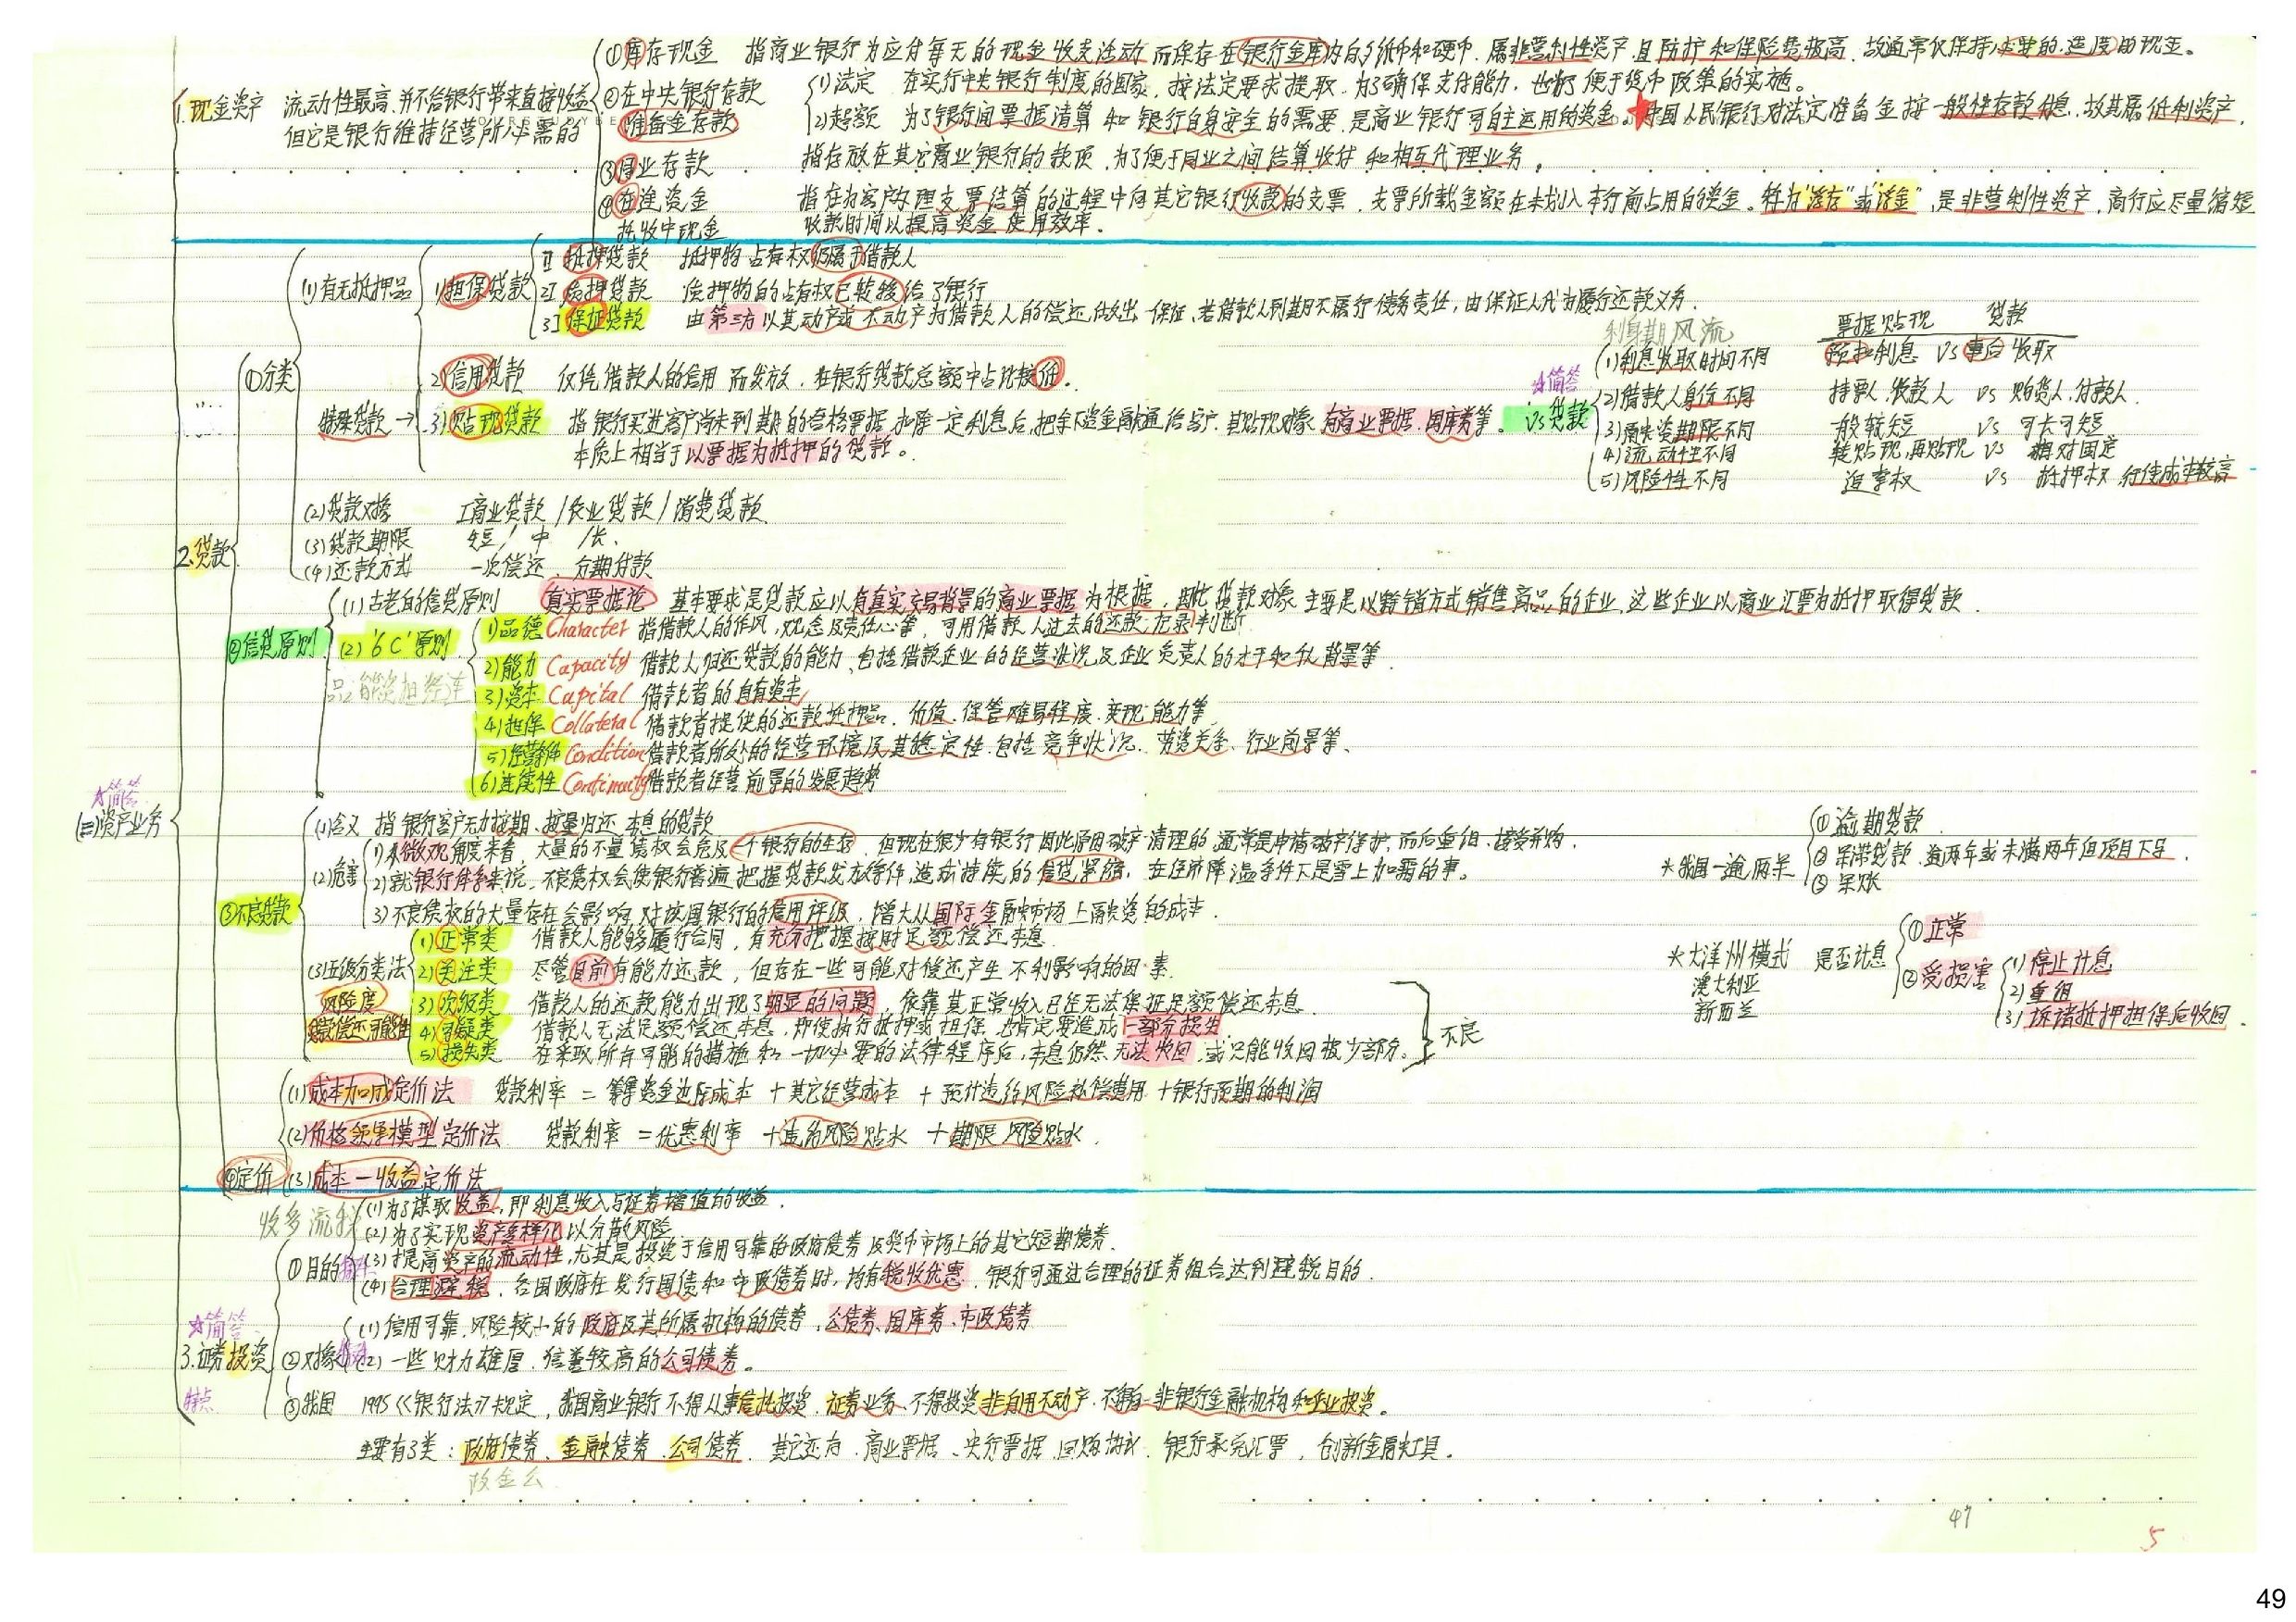 ①库存现金 指商业银行为应付每天的现金收支活动而保存在银行金库内的纸币和硬币.属非营利性资产,且防护和保险费极高,故通常仅保持必要的、适度的现金。
1.现金资产 流动性最高,并不给银行带来直接收益
但它是银行维持经营所必需的
②在中央银行存款
准备金存款
(1)法定 在实行中央银行制度的国家,按法定要求提取,为了确保支付能力,也便于货币政策的实施。
(2)超额 为了银行间票据清算和银行自身安全的需要,是商业银行可自主运用的资金。★中国人民银行对法定准备金按一般性存款付息,故其属低利资产.
③同业存款 指存放在其它商业银行的款项,为了便于同业之间结算收付和相互代理业务。
④在途资金 指在为客户办理支票结算的过程中向其它银行收款的支票,支票所载金额在未划入本行前占用的资金。称为"浮存"或"浮金",是非营利性资产,商行应尽量缩短
托收中现金 收款时间以提高资金使用效率.
(三)资产业务
☆简答
2.贷款
①分类
(1)有无抵押品
1)担保贷款
1] 抵押贷款 抵押物占有权仍属于借款人
2] 质押贷款 质押物的占有权已转移给了银行
3] 保证贷款 由第三方以其动产或不动产为借款人的偿还做出保证,若借款人到期不履行债务责任,由保证人代为履行还款义务.
2)信用贷款 仅凭借款人的信用而发放,在银行贷款总额中占比较低.
特殊贷款→3)贴现贷款 指银行买进客户尚未到期的合格票据,扣除一定利息后,把余下资金融通给客户.其贴现对象有商业票据、国库券等。 VS 贷款
本质上相当于以票据为抵押的贷款。
☆简答
利身期风流
票据贴现 贷款
(1)利息收取时间不同 预扣利息 VS 事后收取
(2)借款人身份不同 持票人.收款人 VS 购货人.付款人.
(3)融资期限不同 一般较短 VS 可长可短
(4)流动性不同 转贴现,再贴现 VS 相对固定
(5)风险性不同 追索权 VS 抵押权 行使成本较高
(2)贷款对象 工商业贷款/农业贷款/消费贷款
(3)贷款期限 短/中/长.
(4)还款方式 一次偿还、分期付款
②信贷原则
(1)古老的信贷原则 真实票据论 基本要求是贷款应以有真实交易背景的商业票据为根据,因此贷款对象主要是以赊销方式销售商品的企业,这些企业以商业汇票为抵押取得贷款.
(2)'6C'原则
品能资担经连
1)品德 Character 指借款人的作风,观念及责任心等,可用借款人过去的还款记录判断
2)能力 Capacity 借款人归还贷款的能力,包括借款企业的经营状况及企业负责人的才干和个人背景等.
3)资本 Capital 借款者的自有资本
4)担保 Collateral 借款者提供的还款抵押品.价值.保管难易程度.变现能力等
5)经营条件 Condition 借款者所处的经营环境及其稳定性.包括竞争状况、劳资关系、行业前景等、
(6)连续性 Continuity 借款者经营前景的发展趋势
③不良贷款
(1)含义 指银行客户无力按期、按量归还本息的贷款
(2)危害
1)从微观角度来看,大量的不良债权会危及一个银行的生存,但现在很少有银行因此原因破产清理的,通常是申请破产保护,而后重组、接受并购.
2)就银行体系来说,不良债权会使银行普遍把握贷款发放条件,造成持续的信贷紧缩,在经济降温条件下是雪上加霜的事。
3)不良债权的大量存在会影响对该国银行的信用评级,增大从国际金融市场上融资的成本.
*我国一逾两呆
①逾期贷款
②呆滞贷款 逾两年或未满两年但项目下马.
③呆账
(3)五级分类法
风险度
贷款偿还可能性
1)正常类 借款人能够履行合同,有充分把握按时足额偿还本息.
2)关注类 尽管目前有能力还款,但存在一些可能对偿还产生不利影响的因素.
3)次级类 借款人的还款能力出现了明显的问题,依靠其正常收入已经无法保证足额偿还本息.
4)可疑类 借款人无法足额偿还本息,即使执行抵押或担保,也肯定要造成一部分损失.
5)损失类 在采取所有可能的措施和一切必要的法律程序后,本息仍然无法收回,或只能收回极少部分.
不良
*大洋州模式 是否计息
澳大利亚
新西兰
①正常
②受损害
(1)停止计息
(2)重组
(3)诉诸抵押担保后收回.
④定价
(1)成本加成定价法 贷款利率 = 筹集资金边际成本 + 其它经营成本 + 预计违约风险补偿费用 + 银行预期的利润
(2)价格领导模型定价法 贷款利率 = 优惠利率 + 违约风险贴水 + 期限风险贴水.
(3)成本一收益定价法
☆简答
3.证券投资
特点
①目的
收多流税
(1)为了谋取收益,即利息收入与证券增值的收益.
(2)为了实现资产多样化以分散风险
(3)提高资产的流动性,尤其是投资于信用可靠的政府债券及货币市场上的其它短期债券.
(4)合理避税,各国政府在发行国债和市政债券时,均有税收优惠,银行可通过合理的证券组合达到避税目的.
②对象
(1)信用可靠.风险较小的政府及其所属机构的债券,公债券、国库券、市政债券
(2)一些财力雄厚.信誉较高的公司债券。
③我国 1995《银行法》规定,我国商业银行不得从事信托投资.证券业务、不得投资非自用不动产.不得向非银行金融机构和企业投资。
主要有3类:政府债券、金融债券、公司债券.其它还有:商业票据、央行票据、回购协议、银行承兑汇票,创新金融工具.
政金公
47
5
49